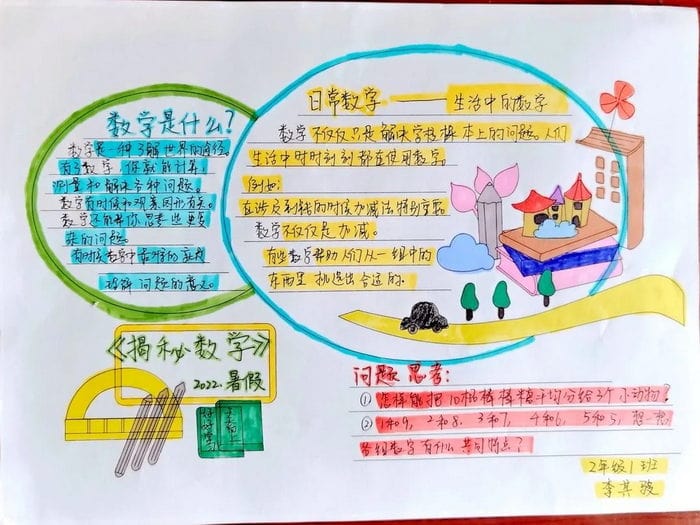 数学是什么?
数学是一种了解世界的途径。
有了数学,你就能计算、
测量和解决各种问题。
数学有时候和观察图形有关。
数学还能帮你思考一些更复
杂的问题。
有时候数学中最难的就是
读解问题的意义。
日常数学——生活中的数学
数学不仅仅只是解决学校课本上的问题。人们
生活中时时刻刻都在使用数学。
例如:
在涉及到钱的时候加减法特别重要。
数学不仅仅是加减。
有些数学帮助人们从一组中的
东西里挑选出合适的.
《揭秘数学》
2022.暑假
好好学习
天天向上
问题思考:
①怎样能把10根棒棒糖平均分给3个小动物?
②1和9,2和8,3和7,4和6,5和5,想一想
各组数字有什么共同特点?
2年级1班
李其骏